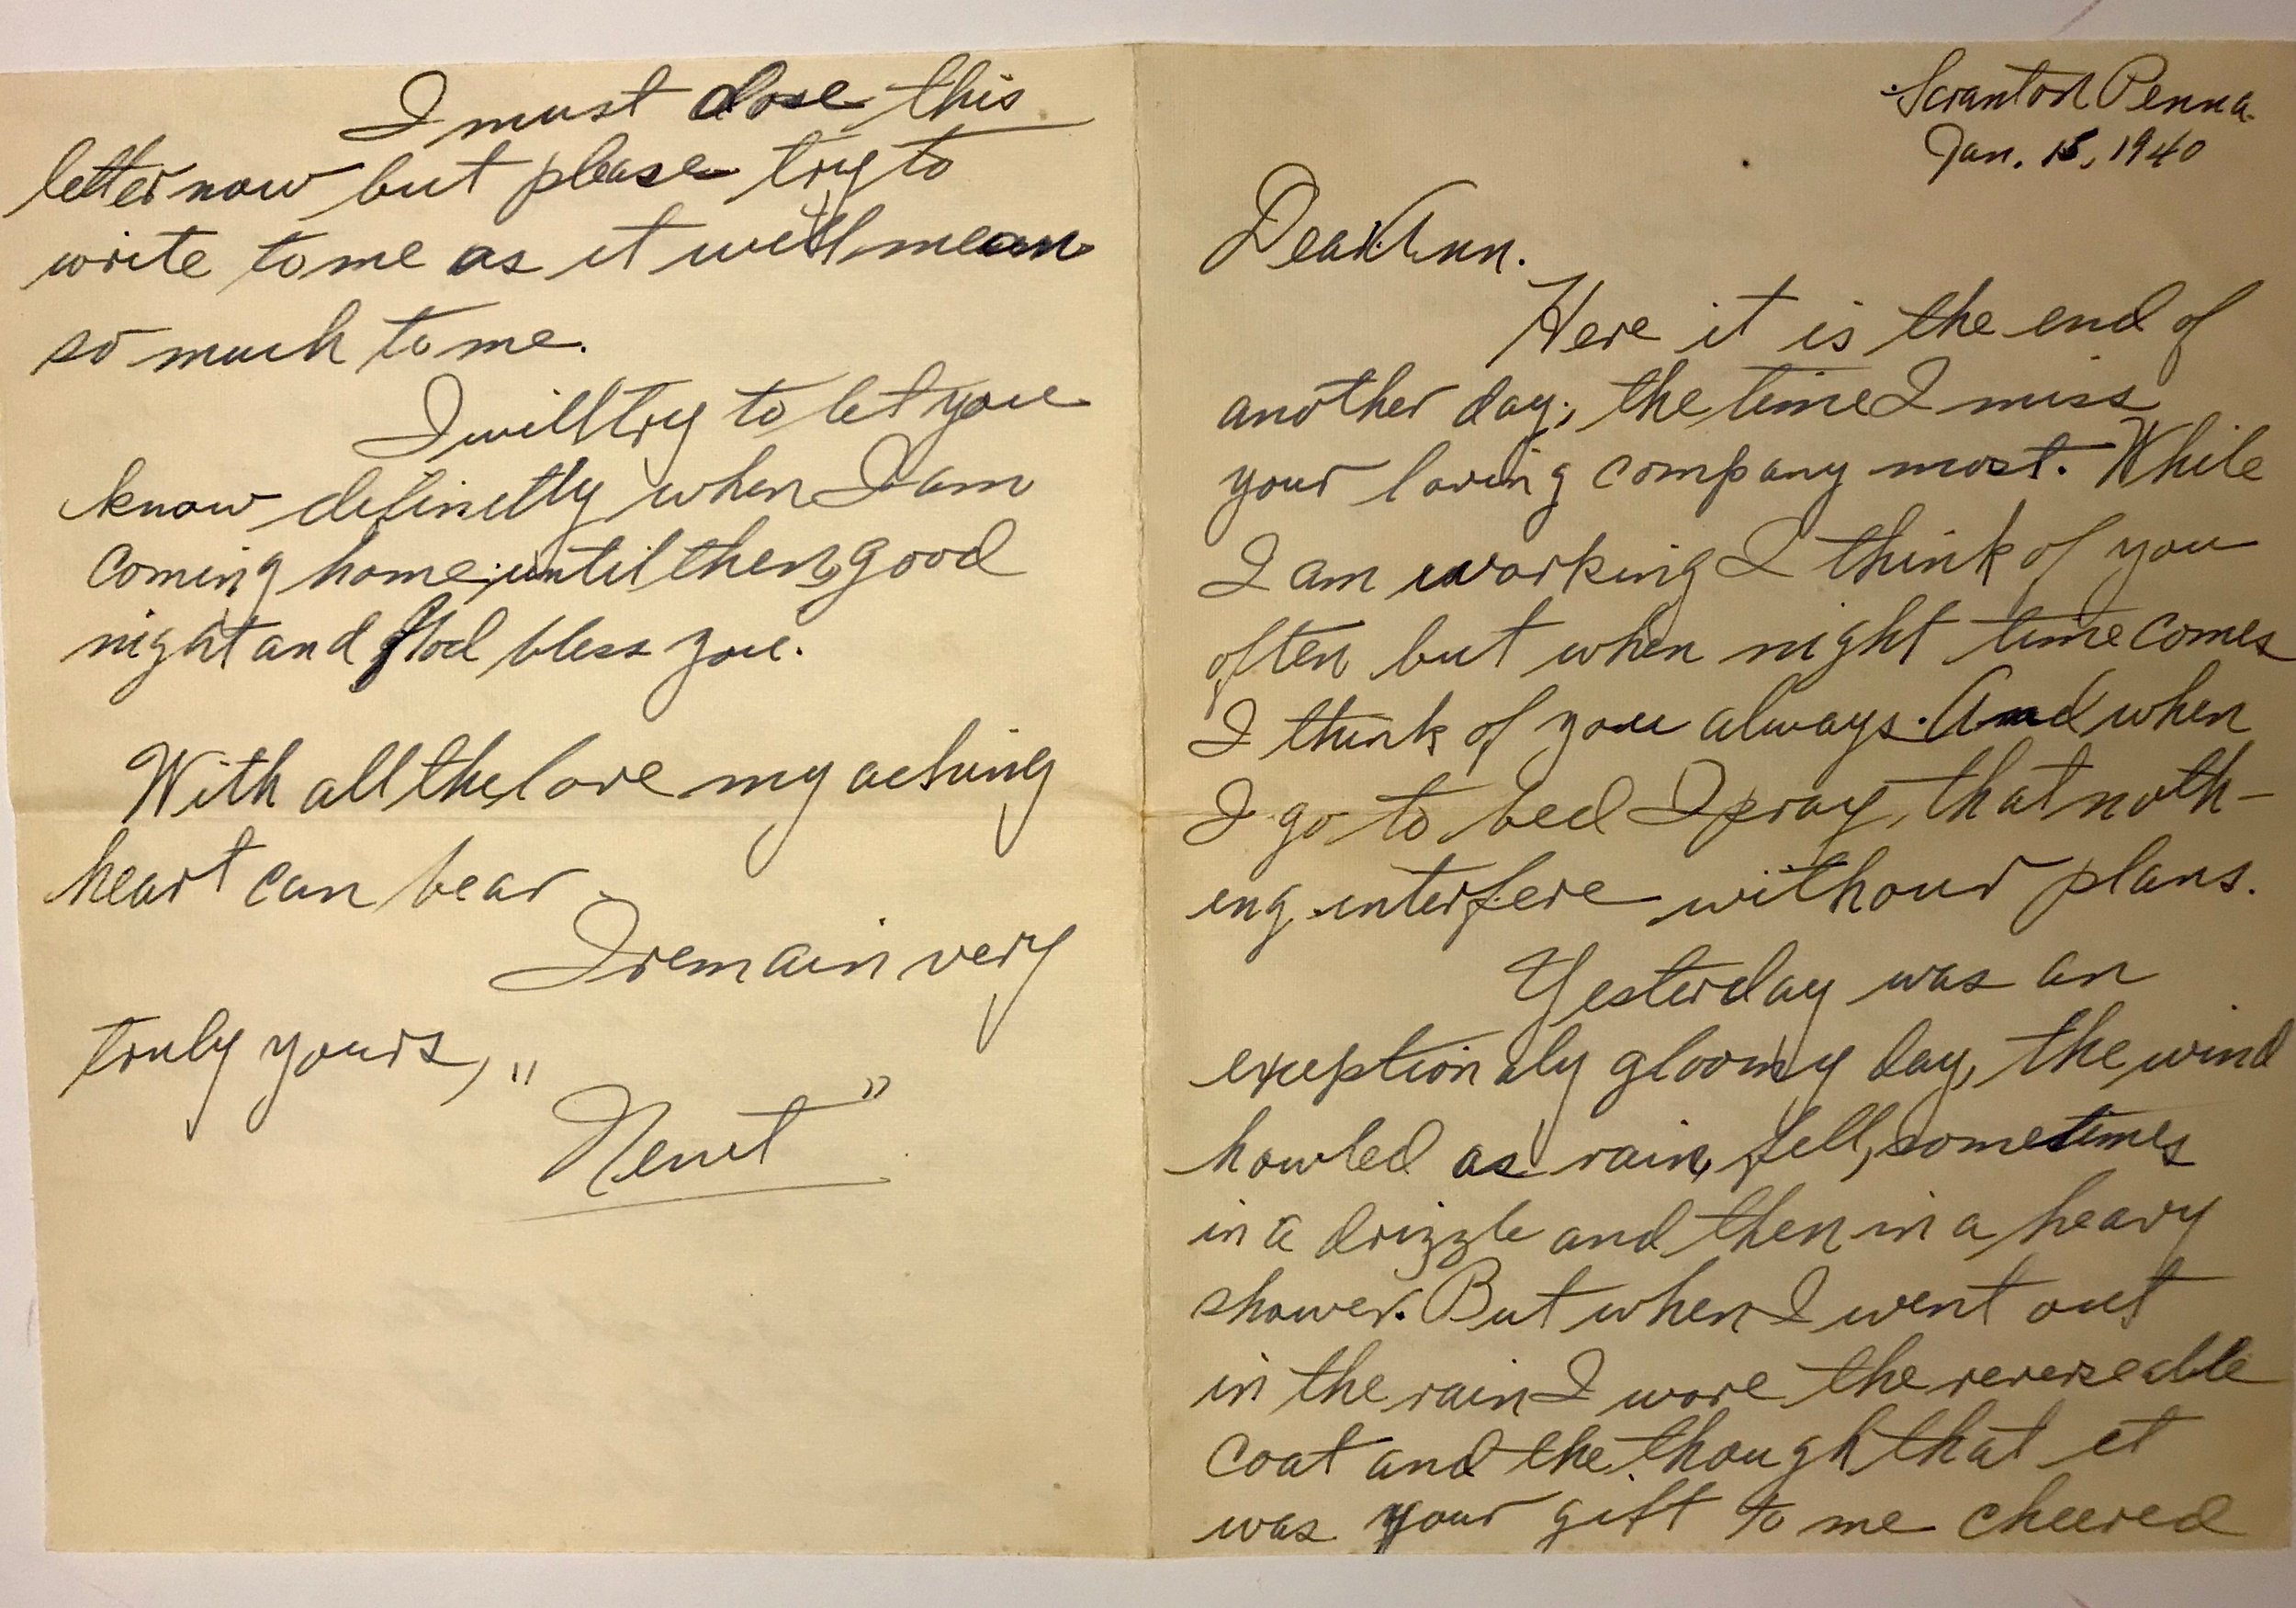 Scranton Penna.
Jan. 15, 1940
Dear Ann.
Here it is the end of
another day, the time I miss
your loving company most. While
I am working I think of you
often but when night time comes
I think of you always. And when
I go to bed I pray, that noth-
ing interfere with our plans.
Yesterday was an
exceptionaly gloomy day, the wind
howled as rain fell, sometimes
in a drizzle and then in a heavy
shower. But when I went out
in the rain I wore the reverseable
coat and the though that it
was your gift to me cheered
I must close this
letter now but please try to
write to me as it will mean
so much to me.
I will try to let you
know definetly when I am
coming home; until then, good
night and God bless you.
With all the love my aching
heart can bear
I remain very
truly yours, "
Newt "